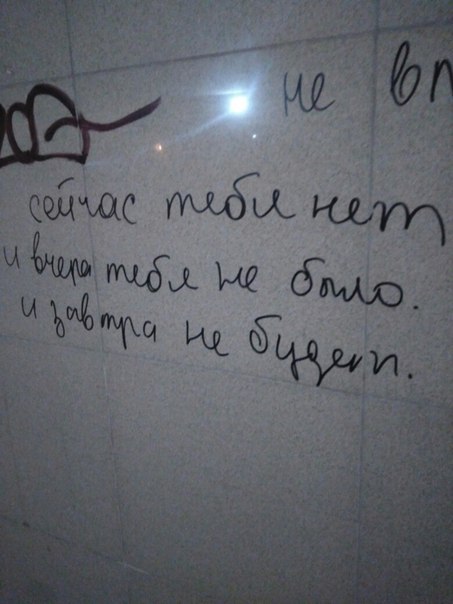 не вп
сейчас тебя нет
и вчера тебя не было.
и завтра не будет.